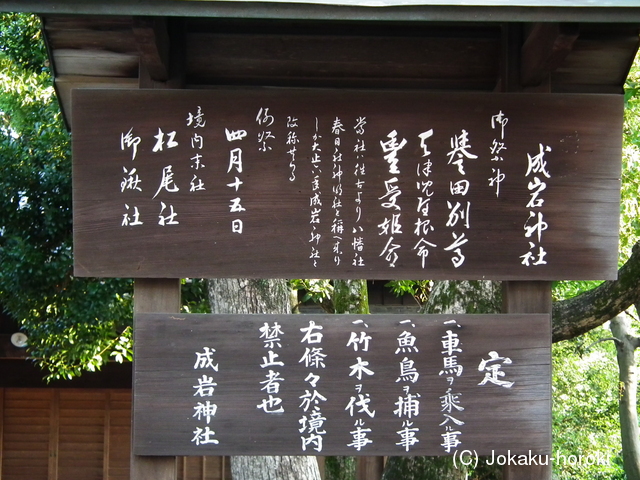 成岩神社
御祭神
誉田別尊
天津児屋根命
豊受姫命
當社ハ往古より八幡社
春日社神明社と稱へ来り
しが大正八年成岩神社と
改称せる
例祭
四月十五日
境内末社
松尾社
御鍬社
定
一、車馬ヲ乘入ル事
一、魚鳥ヲ捕ル事
一、竹木ヲ伐ル事
右條々於境内
禁止者也
成岩神社
(C) Jokaku-horoki